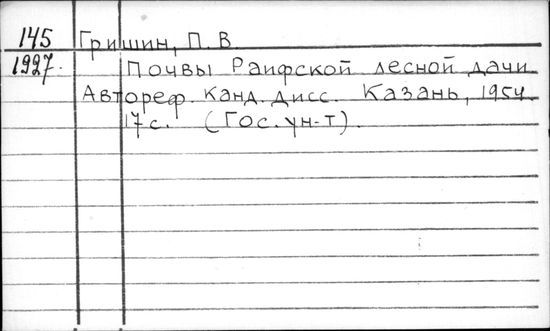 145 Гришин, П. В
1927. Почвы Раифской лесной дачи.
Автореф. канд. дисс. Казань, 1954.
17 с. (Гос. ун-т).